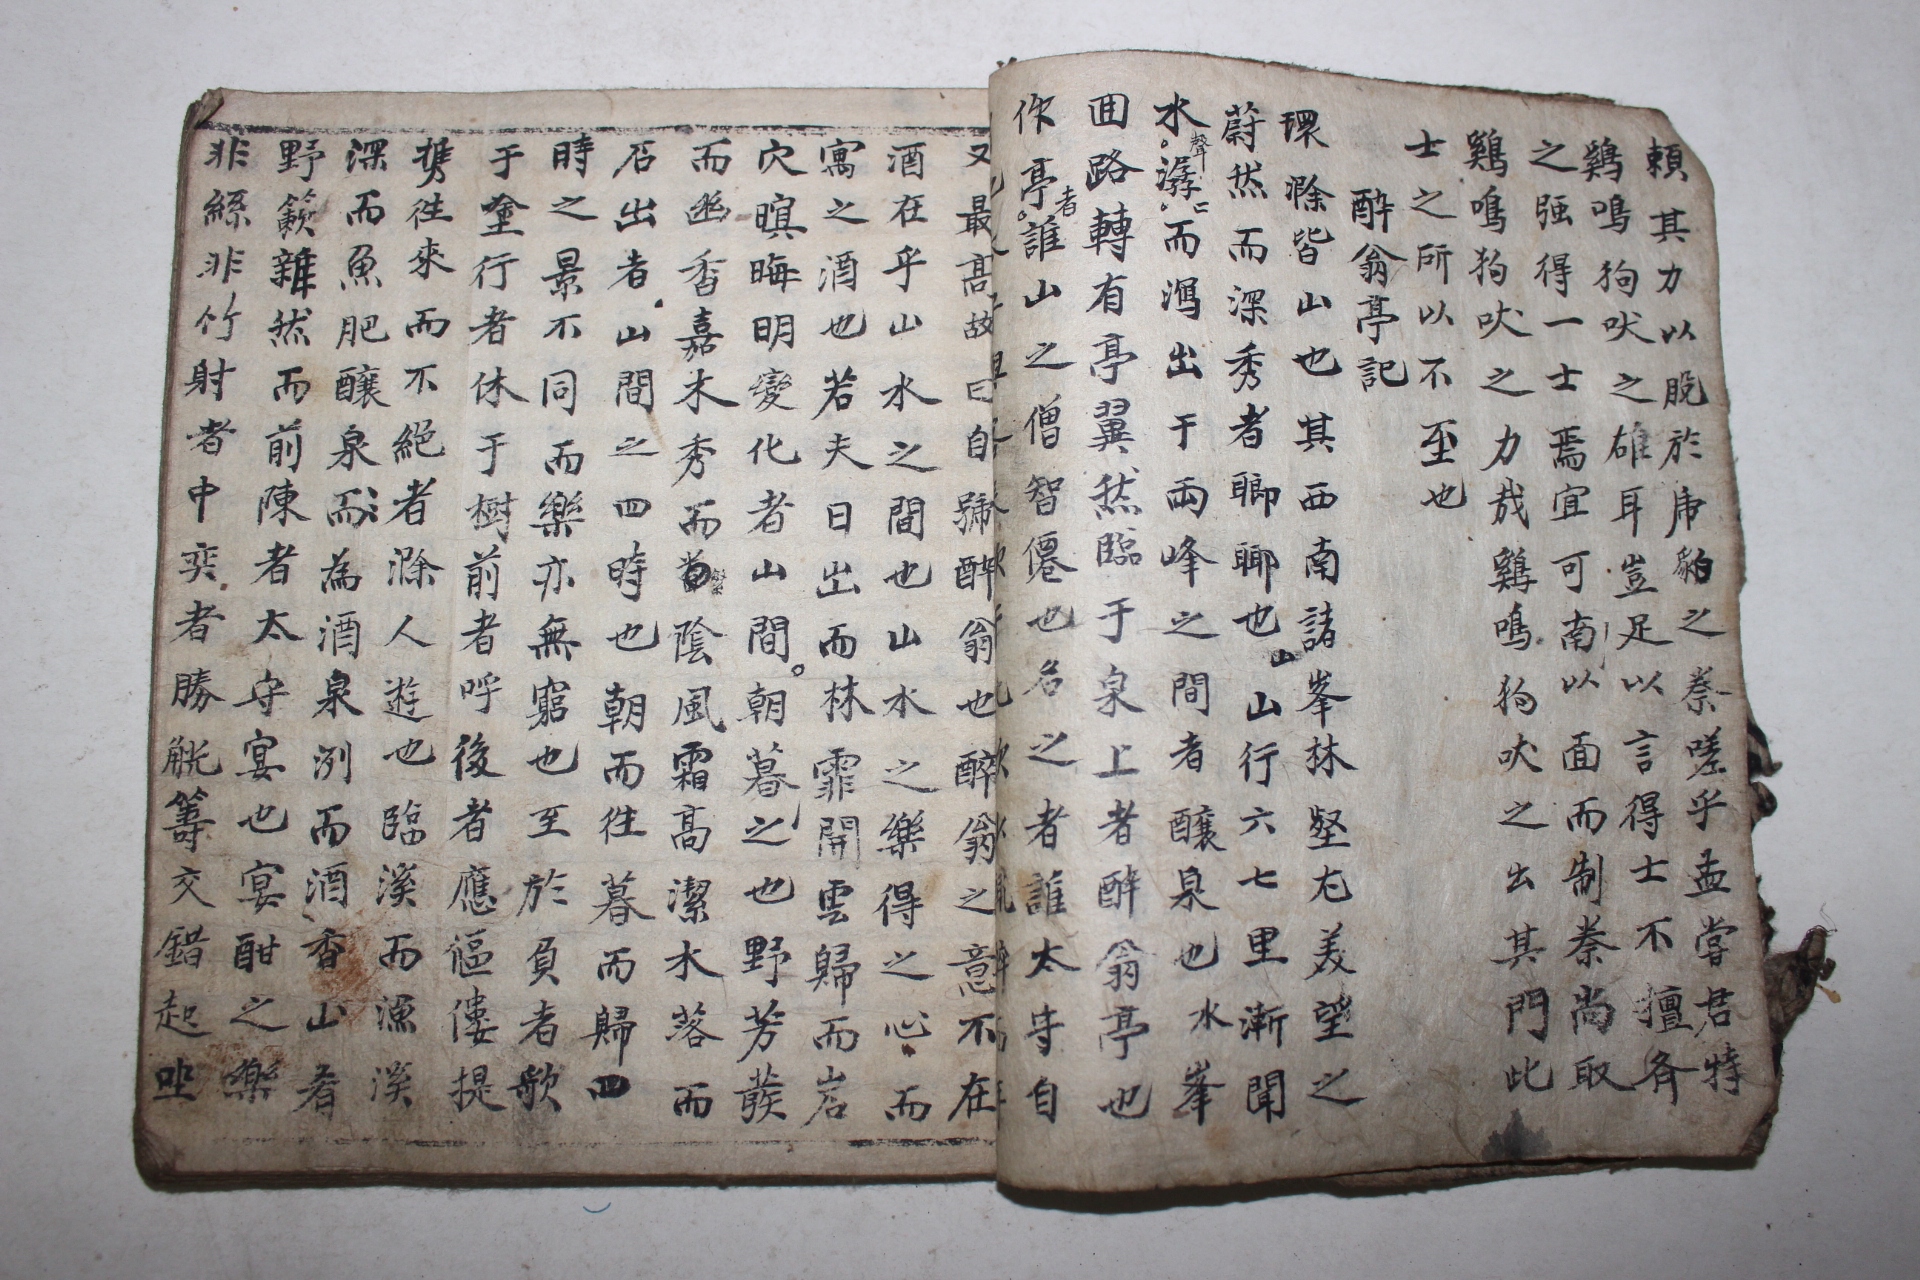 賴其力以脫於虎豹之秦嗟乎孟嘗君特
鷄鳴狗吠之雄耳豈足以言得士不擅齊
之强得一士焉宜可南以面而制秦尚取
鷄鳴狗吠之力哉鷄鳴狗吠之出其門此
士之所以不至也
醉翁亭記
環滁皆山也其西南諸峯林壑尤美望之
蔚然而深秀者瑯瑘也山行六七里漸聞
水聲潺〻而瀉出于兩峰之間者釀泉也水峯
回路轉有亭翼然臨于泉上者醉翁亭也
作亭者誰山之僧智僊也名之者誰太守自
又最高故曰自號醉翁也醉翁之意不在
酒在乎山水之間也山水之樂得之心而
寓之酒也若夫日出而林霏開雲歸而岩
穴暝晦明變化者山間朝暮之也野芳發
而幽香嘉木秀而陰風霜高潔水落而
石出者山間之四時也朝而往暮而歸四
時之景不同而樂亦無窮也至於負者歌
于塗行者休于樹前者呼後者應傴僂提
携往來而不絕者滁人遊也臨溪而漁溪
深而魚肥釀泉而爲酒泉洌而酒香山肴
野簌雜然而前陳者太守宴也宴酣之樂
非絲非竹射者中奕者勝觥籌交錯起坐